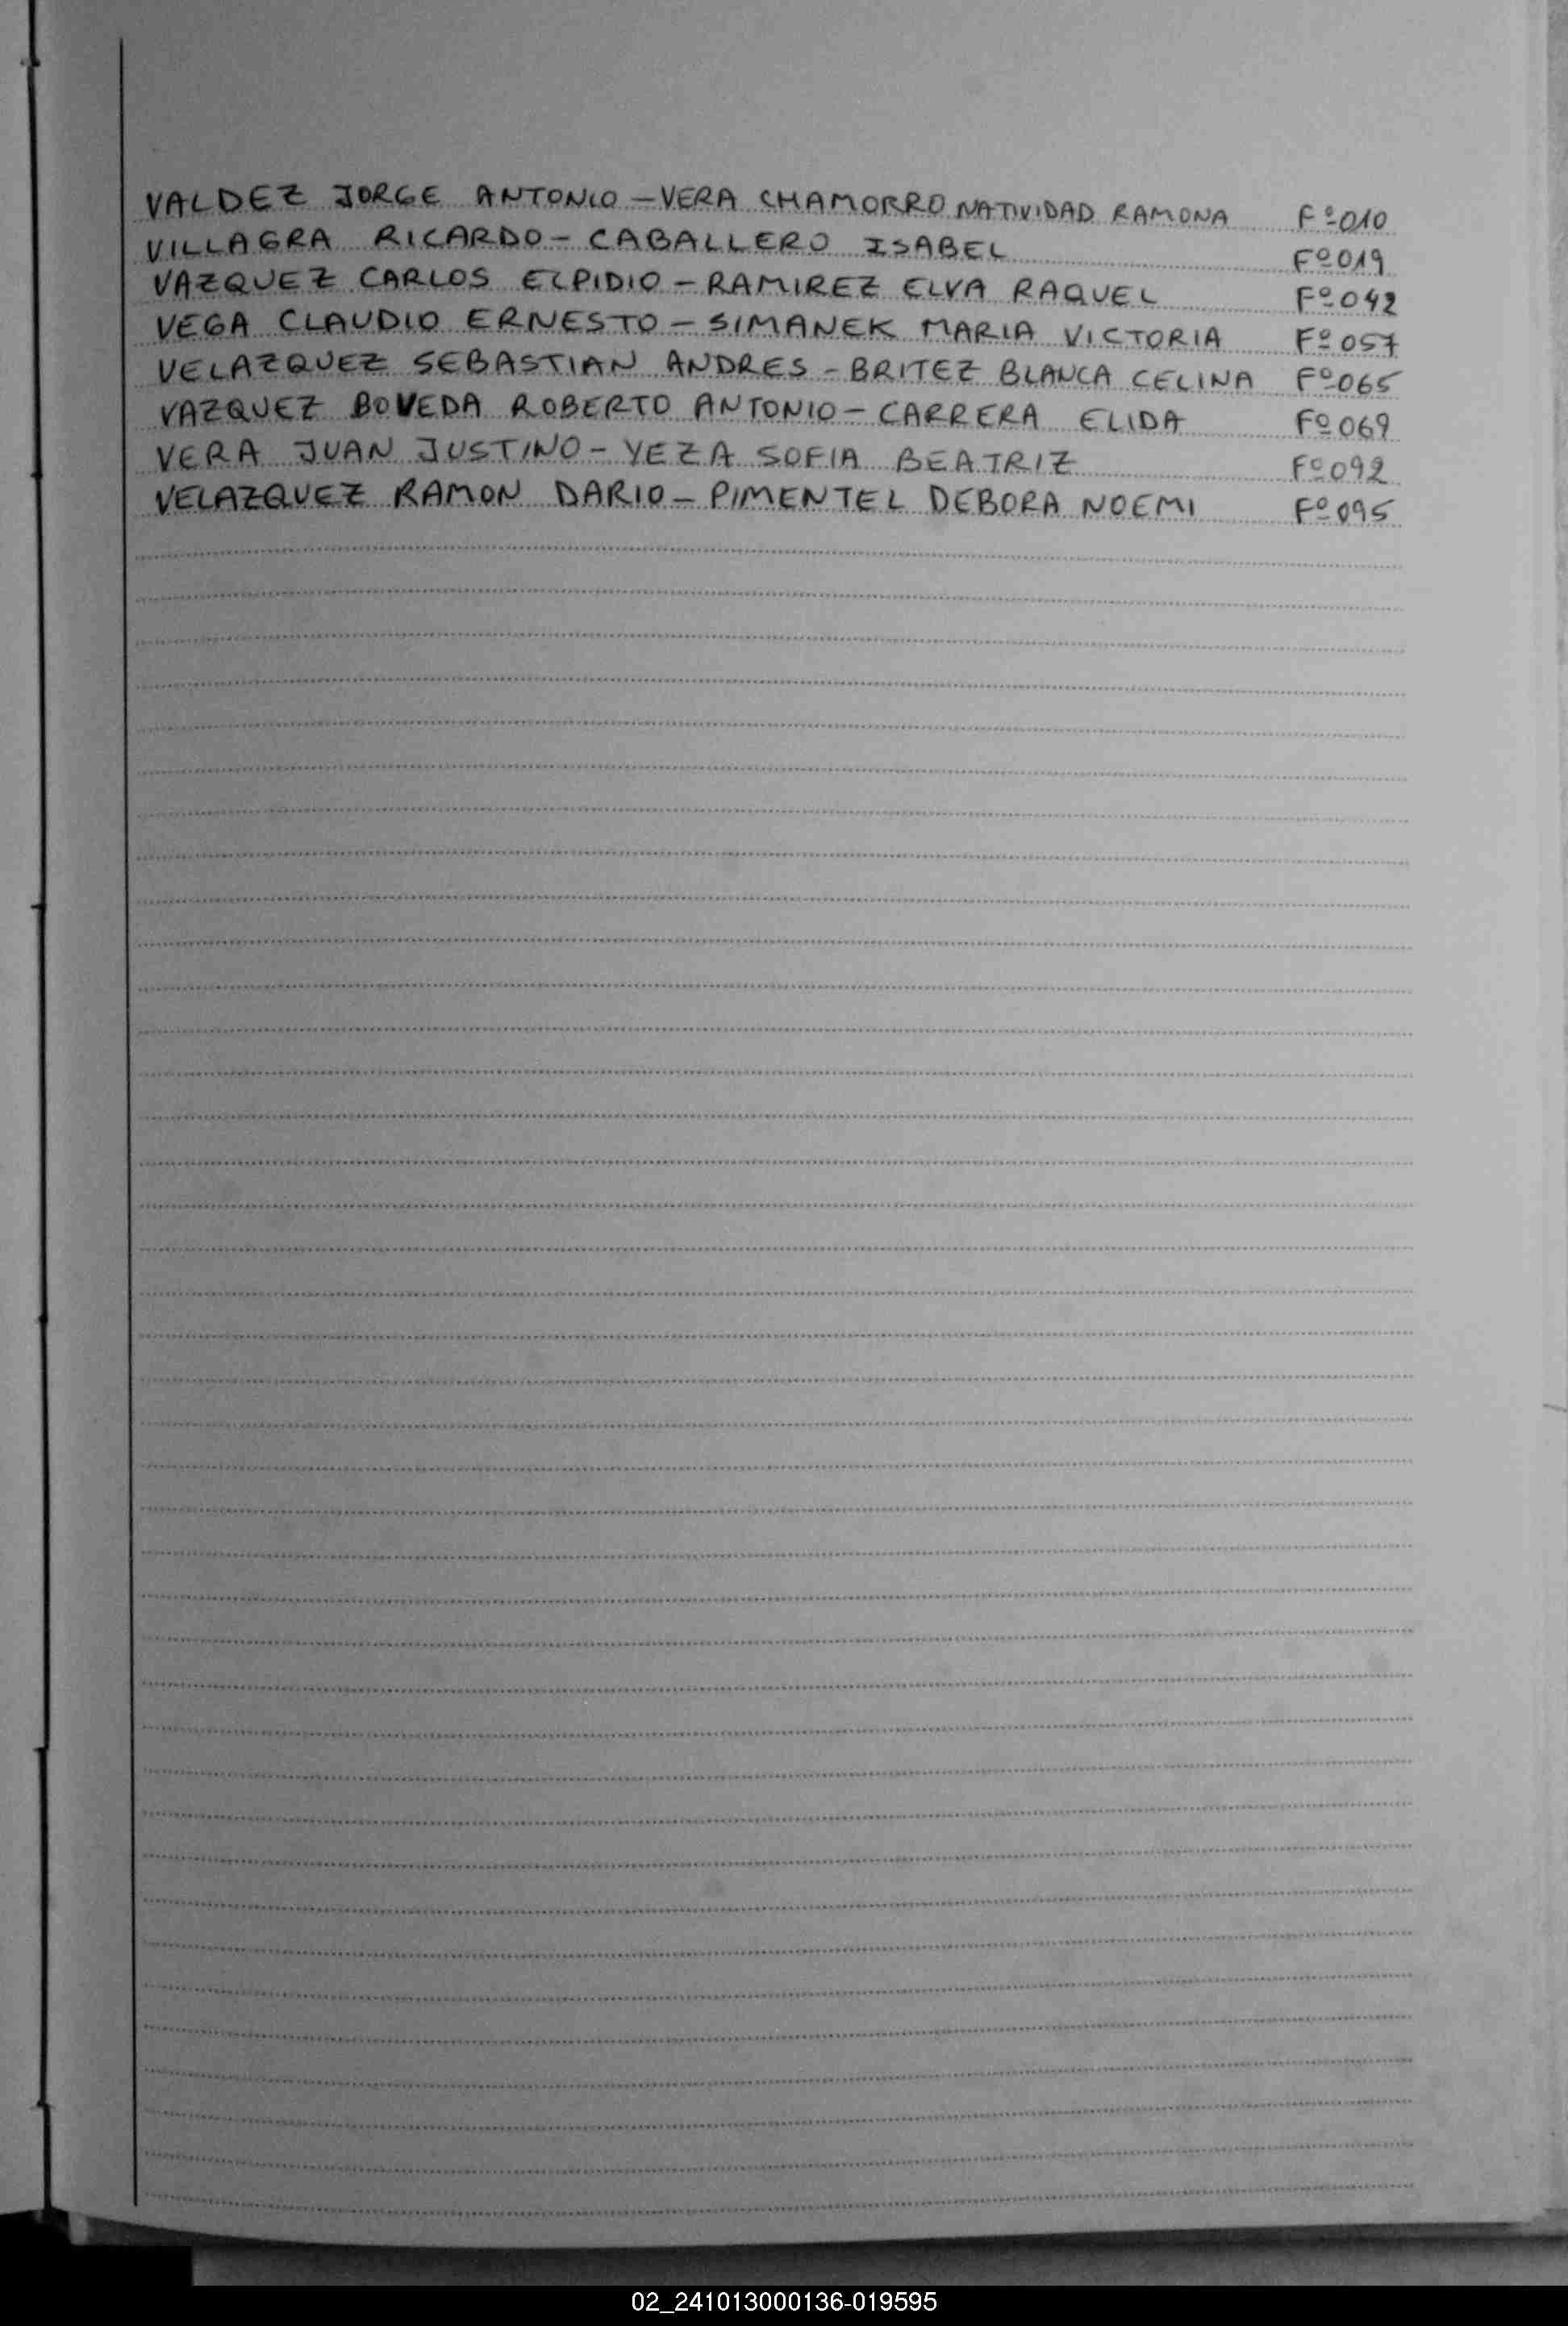 VALDEZ JORGE ANTONIO - VERA CHAMORRO NATIVIDAD RAMONA Fº 010
VILLAGRA RICARDO - CABALLERO ISABEL Fº 019
VAZQUEZ CARLOS ELPIDIO - RAMIREZ ELVA RAQUEL Fº 042
VEGA CLAUDIO ERNESTO - SIMANEK MARIA VICTORIA Fº 057
VELAZQUEZ SEBASTIAN ANDRES - BRITEZ BLANCA CELINA Fº 065
VAZQUEZ BOVEDA ROBERTO ANTONIO - CARRERA ELIDA Fº 069
VERA JUAN JUSTINO - YEZA SOFIA BEATRIZ Fº 092
VELAZQUEZ RAMON DARIO - PIMENTEL DEBORA NOEMI Fº 095
02_241013000136-019595